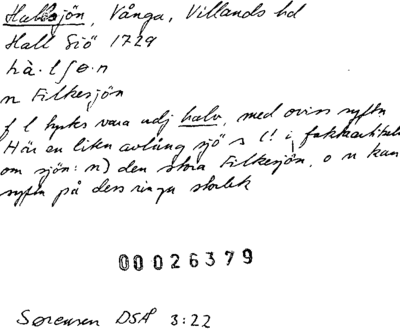 Hallsjön, Vånga, Villands hd
Hall Siö 1729
hà·lʃɵ·n
n Filkesjön
f l tycks vara adj halv, med oviss syftn
Här en liten avlång sjö s (! i faktaartikeln
om sjön: n) den stora Filkesjön, o n kan
syfta på dess ringa storlek
00026379
Sörensen DSÅ 3:22